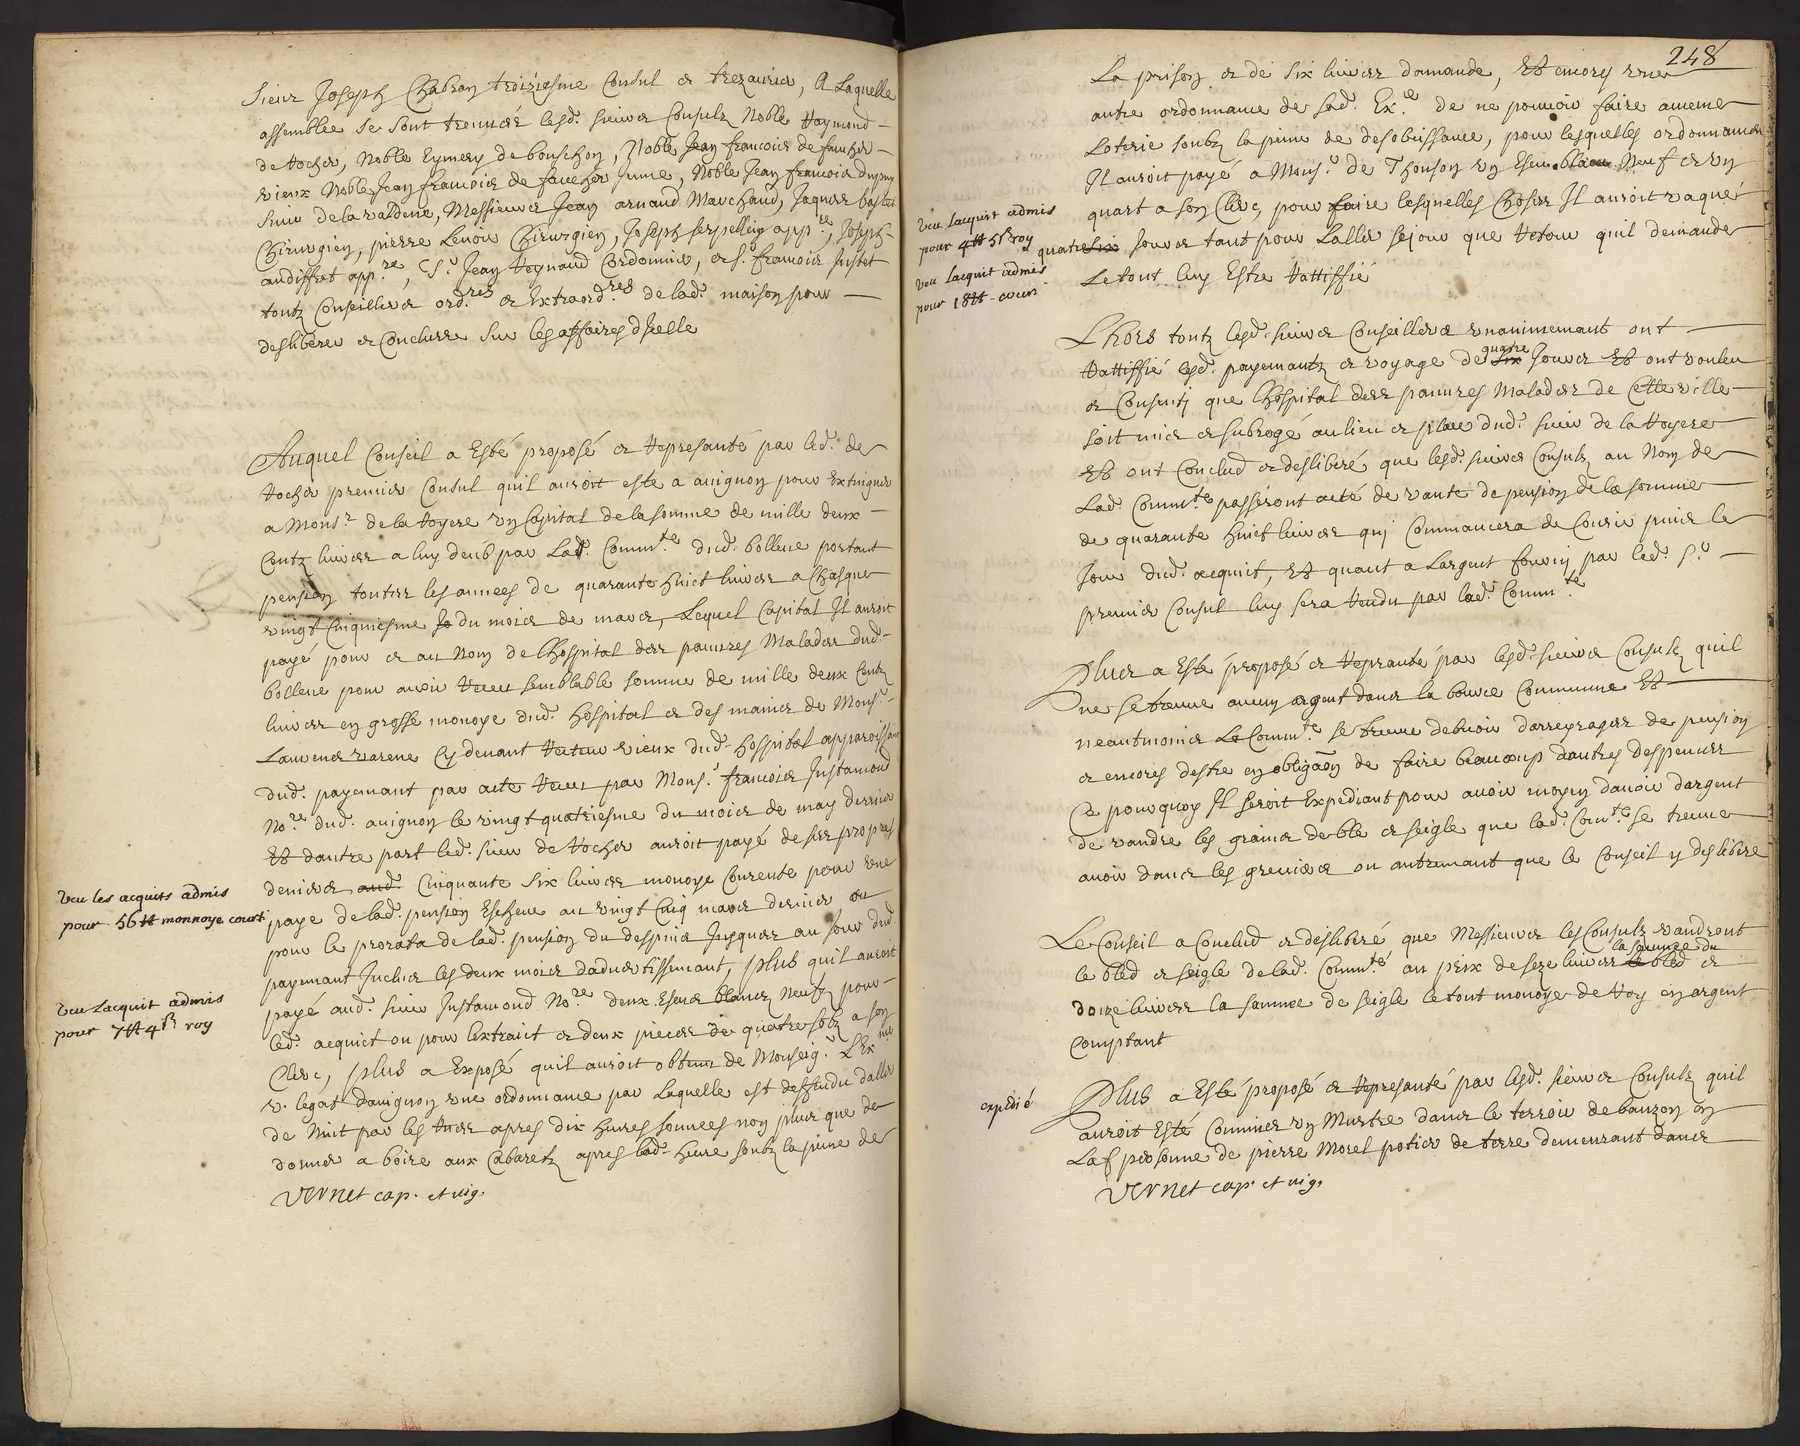 Sieur Joseph Chabran troiziesme Consul et trezaurier, A Laquelle
assemblee se sont treuvés lesd. sieurs Consulz Noble Raymond
de Rocher, Noble Eymery de bouschon, Noble Jean francois de faucher
vieux Noble Jean francois de faucher jeune, Noble Jean francois dupuy
sieur de la valdene, Messieurs Jean arnaud Marchand, Jaques bastet
Chirurgien, pierre Lenoir Chirurgien, Joseph serpellin app.re, Joseph
audiffret app.re, Sr. Jean Reynaud Cordonnier, et s. francois Justet
toutz Conseillers ord.res et Extraord.res de lad. maison pour
deslibérer et Conclurre sur les affaires dicelle
Auquel Conseil a Esté proposé et Represanté par led. de
Rocher premier Consul quil auroit esté a avignon pour Extinguer
a Mons.r de la Royere un Capital de la somme de mille deux
Centz livres a luy deub par Lad. Comm.té dud. bollene portant
pension toutes les annees de quarante huict livres a Chasque
vingt Cinquiesme du mois de mars, Lequel Capital Il auroit
payé pour et au Nom de lhospital des pauvres Malades dud.
bollene pour avoir Receu semblable somme de mille deux Centz
livres en grosse monoye dud. hospital et des mains de Mons.r
Laurens varene Cy devant Recteur vieux dud. hospital apparoissant
dud. payemant par acte Receu par Mons.r francois Justamond
No.re dud. avignon le vingt quatriesme du mois de may dernier
Et dautre part led. sieur de Rocher auroit payé de ses propres
deniers aud. Cinquante six livres monoye Courente pour une
paye de lad. pension Escheue au vingt Cinq mars dernier ou
pour le prorata de lad. pension du despuis Jusques au Jour dud.
payemant Inclus les deux mois daduertissemant, plus quil auroit
payé aud. sieur Justamond No.re deux Escus blancz Neufz pour
led. acquict ou pour lextraict et deux pieces de quatre solz a son
Clerc, plus a Exposé quil auroit obtenu de Monseig.r LEx.me
v. legat davignon une ordonnance par Laquelle est deffendu daller
de Nuit par les Rues apres dix heures sonnees non plus que de
donner a boire aux Cabaretz apres lad. heure soubz la peine de
Vernet cap. et vig.
Veu les acquits admis
pour 56 tt monnoye court.
Veu Lacquit admis
pour 7 tt 4 s roy
248
La prison et de six livres damande, Et encore une
autre ordonnance de sad. Ex.e de ne pouvoir faire aucune
Loterie soubz la peine de desobeissance, pour lesquelles ordonnances
Il auroit payé a Mons.r de Thonson un Escu blanc Neuf et un
quart a son Clerc, pour faire lesquelles Choses Il auroit vaqué
quatre six jours tant pour Laller sejour que Retour quil demande
Le tout luy Estre Rattiffié
Veu Lacquit admis
pour 4 tt 5 s roy
Veu Lacquit admis
pour 18 tt cour.
Lhors toutz lesd. sieurs Conseillers unanimemant ont
Rattiffié lesd. payemantz et voyage de six quatre Jours Et ont voulu
et Consenti que lhospital des pauvres Malades de Cette ville
soit mis et subrogé au lieu et place dud. sieur de la Royere
Et ont Conclud et deslibéré que lesd. sieurs Consulz au Nom de
Lad. Comm.té passeront acte de vante de pension de la somme
de quarante huict livres qui Commancera de Courir puis le
Jour dud. acquit, Et quant a Largent fourny par led. s.r
premier Consul luy sera Rendu par lad. Comm.té
Plus a Esté proposé et Reprasanté par lesd. sieurs Consulz quil
ne se treuve aucun argent dans la bource Commune Et
neautmoins La Comm.té se treuve debvoir darreyrages de pension
et encores destre en obligaon de faire beaucoup dautres despences
Ce pourquoy Il seroit Expediant pour avoir moyen davoir dargent
de vandre les grains de blé et seigle que lad. Com.té se treuve
avoir dans les greniers ou autremant que le Conseil y deslibere
Le Conseil a Conclud et deslibéré que Messieurs les Consulz vandront
le bled et seigle de lad. Comm.té au prix de seze livres la saumee du bled et
doize livres la saumee de seigle le tout monoye de Roy en argent
Comptant
expedié
Plus a Esté proposé et Represanté par lesd. sieurs Consulz quil
auroit Esté Commis un Murtre dans le terroir de bauzon en
La personne de pierre Morel potier de terre demeurant dans
Vernet cap. et vig.